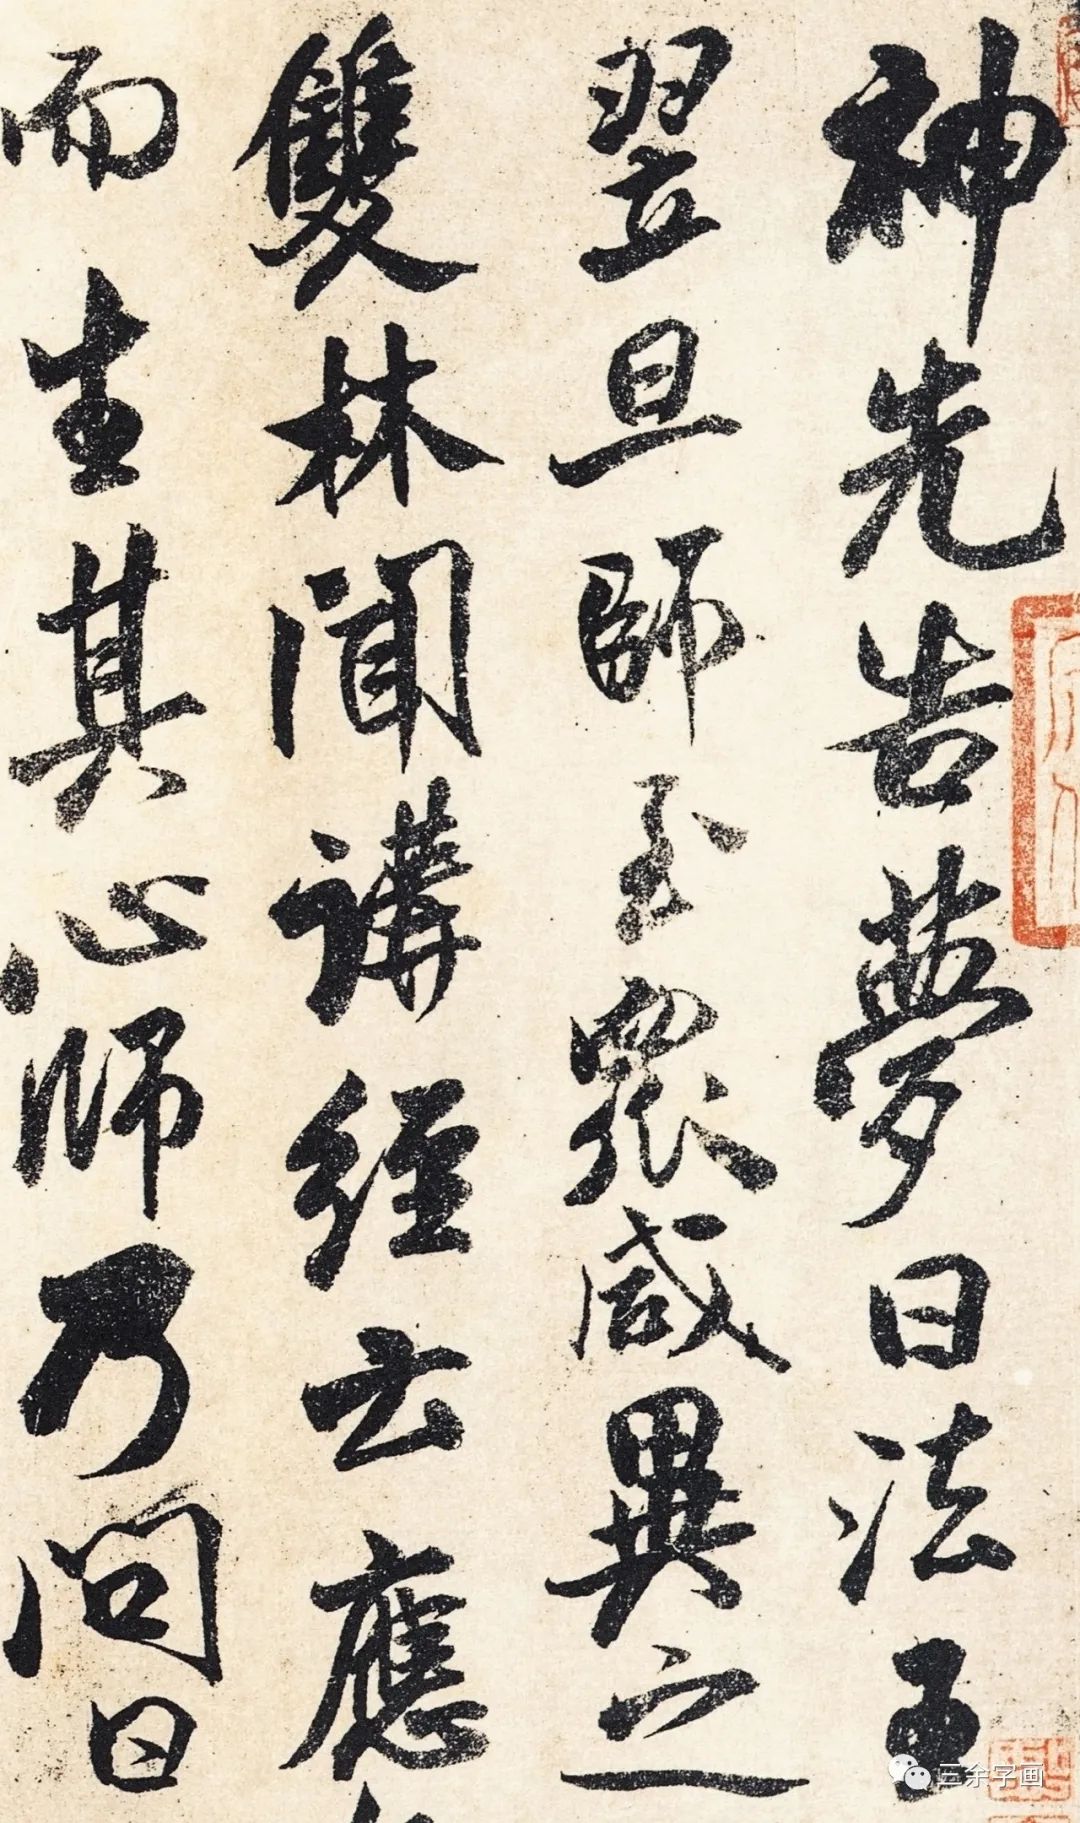 神先告夢曰法王
翌旦師至衆咸異之
雙林聞講經云應
而生其心師乃問曰
三余字画